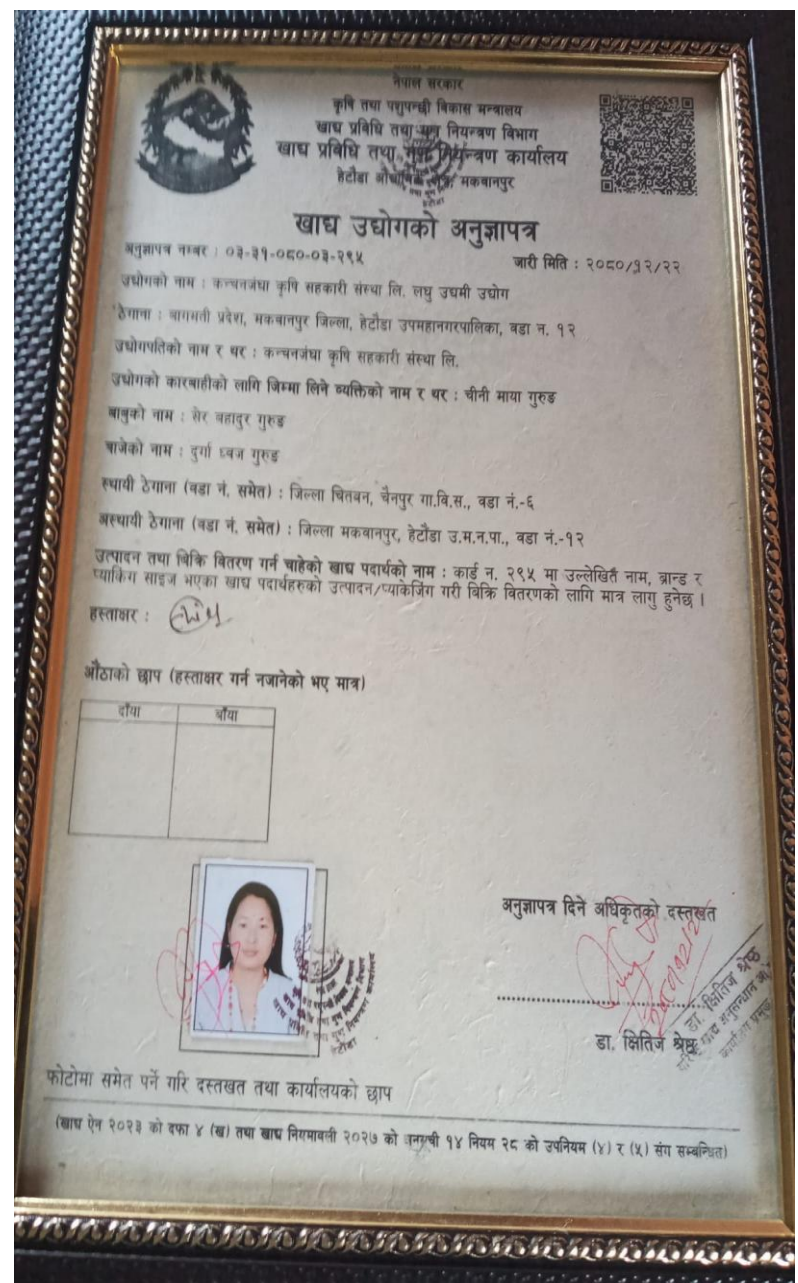 नेपाल सरकार
कृषि तथा पशुपन्छी विकास मन्त्रालय
खाद्य प्रविधि तथा गुण नियन्त्रण विभाग
खाद्य प्रविधि तथा गुण नियन्त्रण कार्यालय
हेटौडा औद्योगिक क्षेत्र, मकवानपुर
खाद्य उद्योगको अनुज्ञापत्र
अनुज्ञापत्र नम्बर : ०३-३१-०८०-०३-२९५
जारी मिति : २०८०/१२/२२
उद्योगको नाम : कन्चनजंघा कृषि सहकारी संस्था लि. लघु उद्यमी उद्योग
ठेगाना : बागमती प्रदेश, मकवानपुर जिल्ला, हेटौडा उपमहानगरपालिका, वडा न. १२
उद्योगपतिको नाम र थर : कन्चनजंघा कृषि सहकारी संस्था लि.
उद्योगको कारबाहीको लागि जिम्मा लिने व्यक्तिको नाम र थर : चीनी माया गुरुङ
बाबुको नाम : सेर बहादुर गुरुङ
बाजेको नाम : दुर्गा ध्वज गुरुङ
स्थायी ठेगाना (वडा नं. समेत) : जिल्ला चितवन, चैनपुर गा.वि.स., वडा नं.-६
अस्थायी ठेगाना (वडा नं. समेत) : जिल्ला मकवानपुर, हेटौंडा उ.म.न.पा., वडा नं.-१२
उत्पादन तथा बिक्रि बितरण गर्न चाहेको खाद्य पदार्थको नाम : कार्ड न. २९५ मा उल्लेखित नाम, ब्रान्ड र
प्याकिंग साइज भएका खाद्य पदार्थहरुको उत्पादन/प्याकेजिंग गरी बिक्रि बितरणको लागि मात्र लागु हुनेछ ।
हस्ताक्षर :
औंठाको छाप (हस्ताक्षर गर्न नजानेको भए मात्र)
दाँया बाँया
अनुज्ञापत्र दिने अधिकृतको दस्तखत
डा. क्षितिज श्रेष्ठ
डा. क्षितिज श्रेष्ठ
वरिष्ठ खाद्य अनुसन्धान
कार्यालय प्रमुख
फोटोमा समेत पर्ने गरि दस्तखत तथा कार्यालयको छाप
(खाद्य ऐन २०२३ को दफा ४ (ख) तथा खाद्य नियमावली २०२७ को अनुसूची १४ नियम २८ को उपनियम (४) र (५) संग सम्बन्धित)